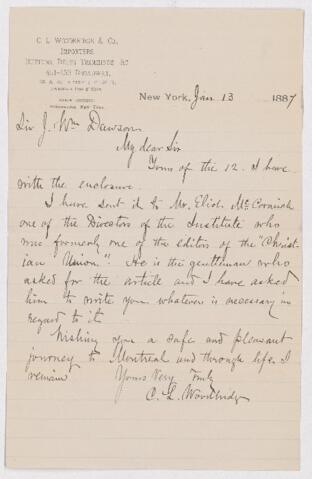 C. L. WOODBRIDGE & CO.
IMPORTERS
BROADWAY,
New York, Jan 13 1887
Sir J. Wm Dawson
My dear Sir
Yours of the 12. I have
with the enclosure.
I have sent it to Mr. Eliot McCormick
one of the Directors of the Institute who
was formerly one of the editors of the "Christ-
ian Union". He is the gentleman who
asked for the article and I have asked
him to write you whatever is necessary in
regard to it
Wishing you a safe and pleasant
journey to Montreal and through life I
remain Yours Very Truly
C. L. Woodbridge